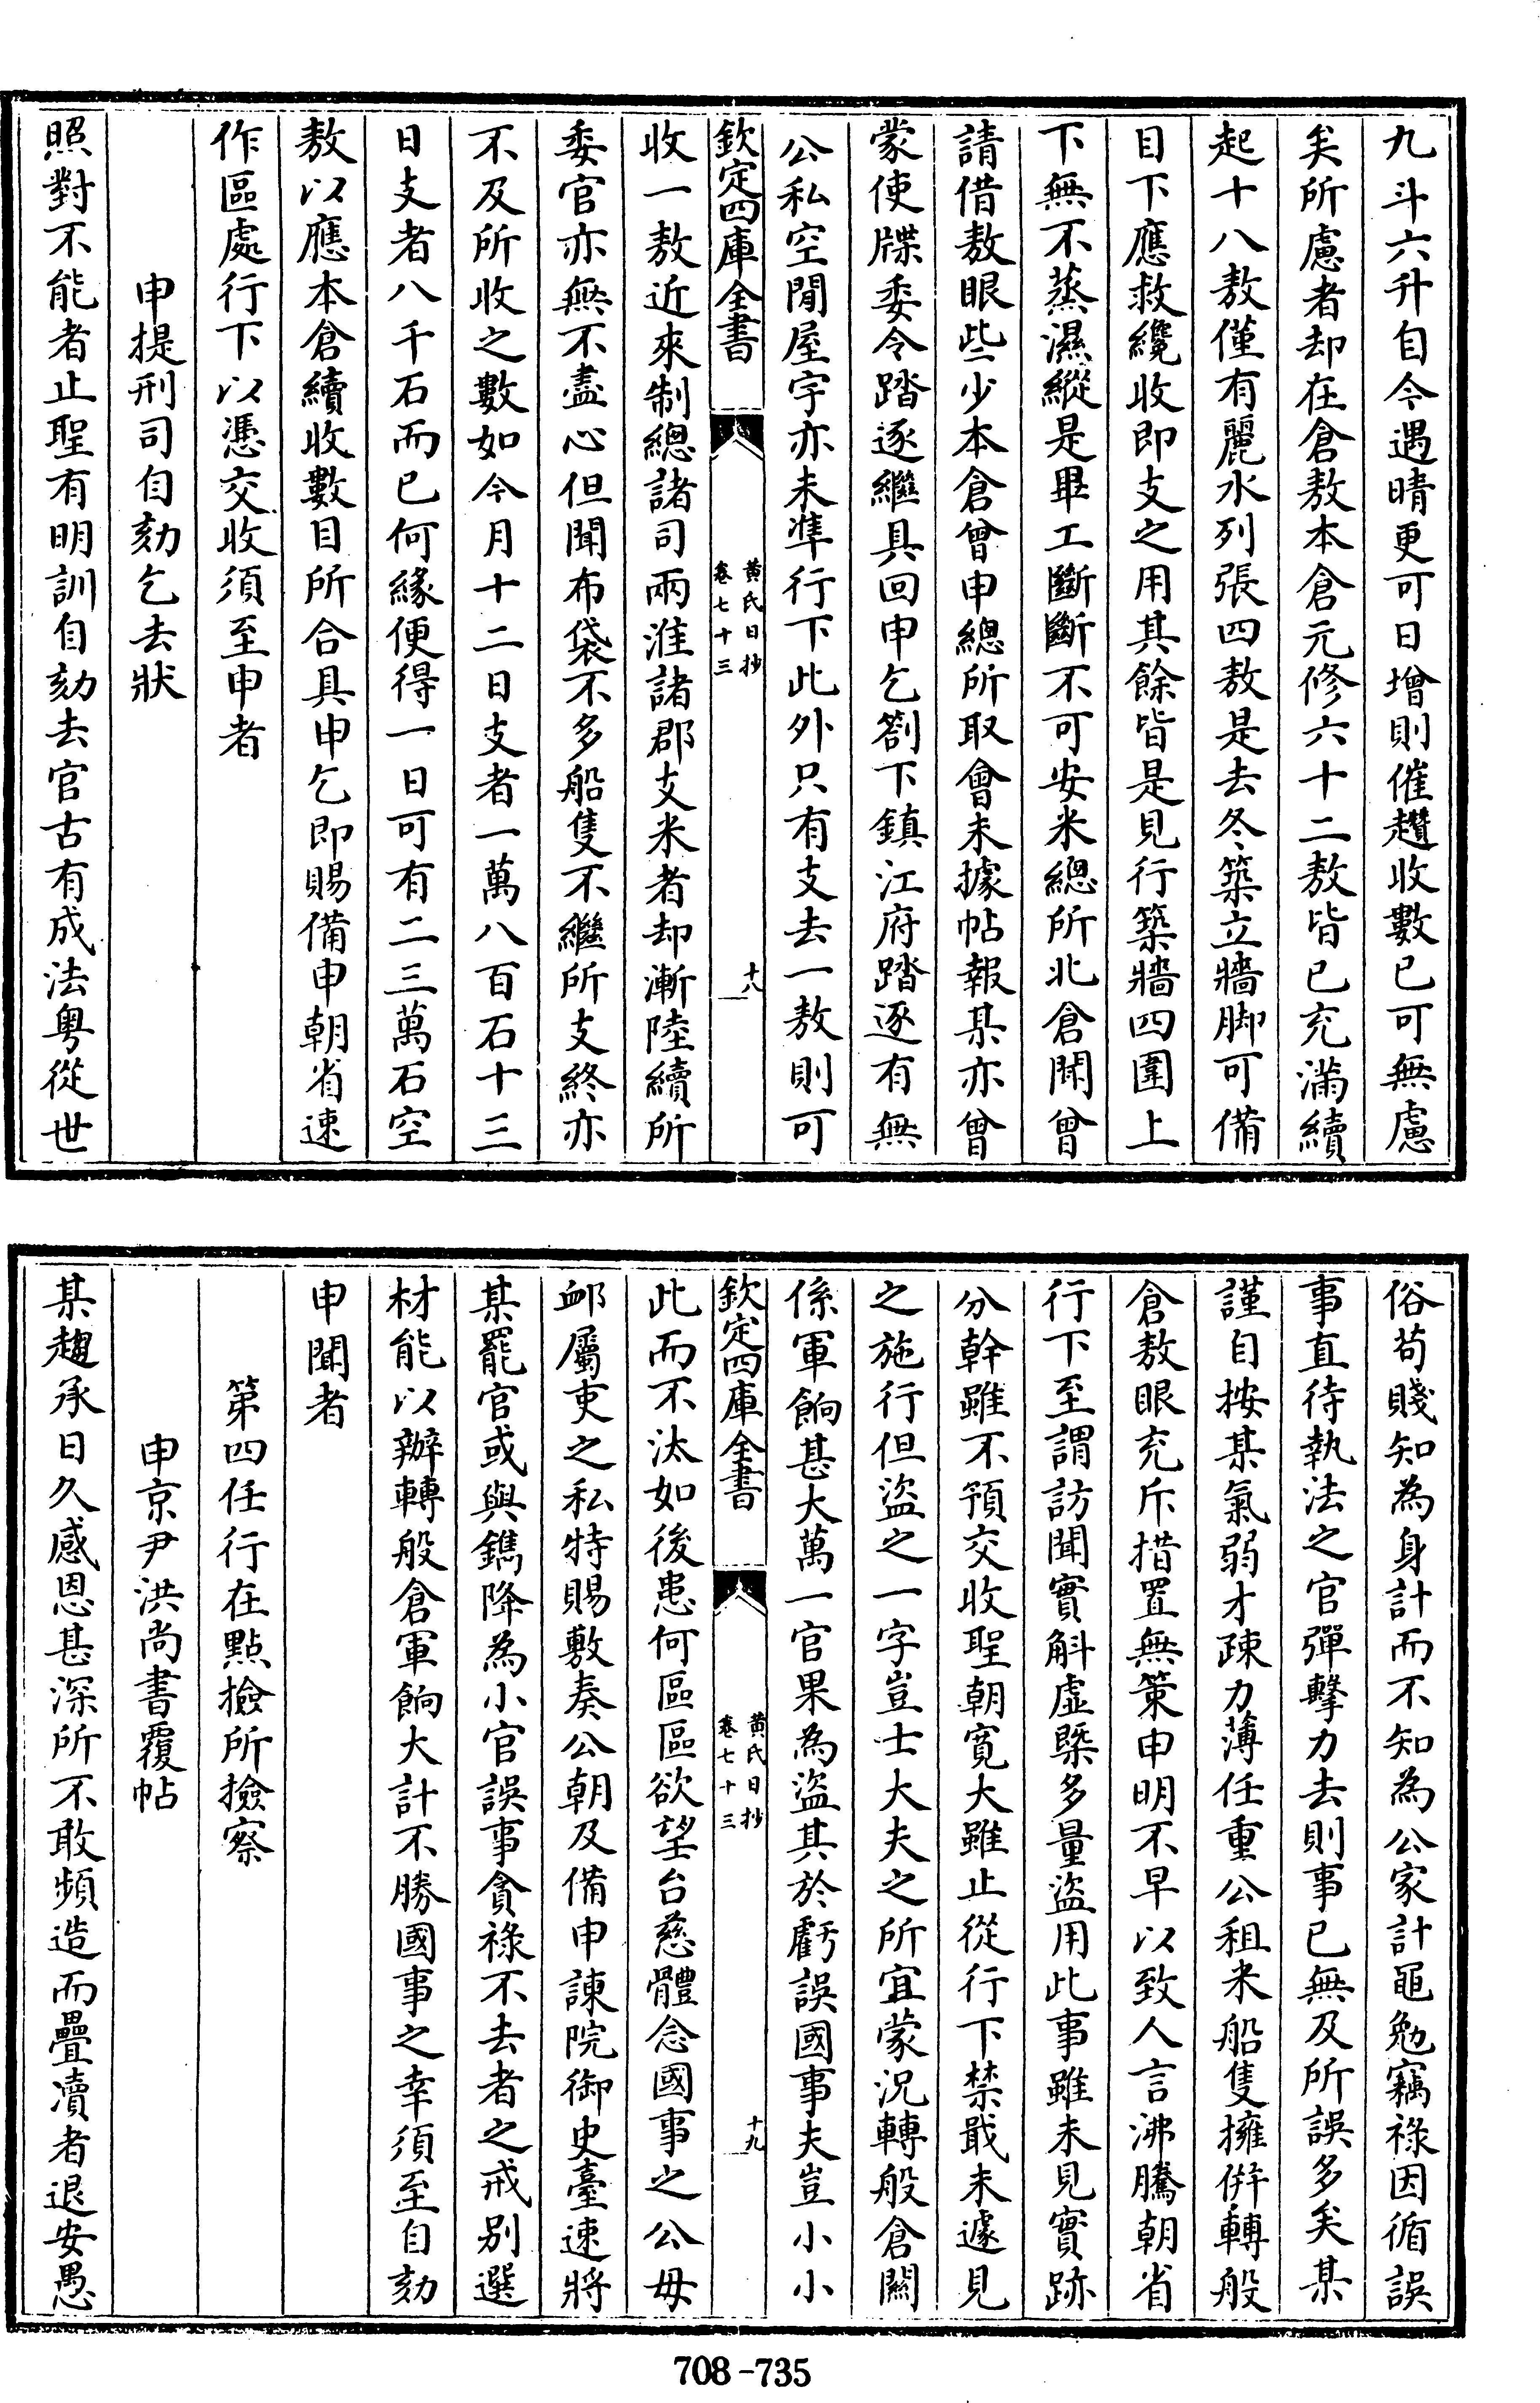 九斗六升自今遇晴更可日增則催趲收數已可無慮
矣所慮者却在倉敖本倉元修六十二敖皆已充滿續
起十八敖僅有麗水列張四敖是去冬築立牆脚可備
目下應救纔收即支之用其餘皆是見行築牆四圍上
下無不蒸濕縱是畢工斷斷不可安米總所北倉閒曾
請借敖眼些少本倉曾申總所取會未據帖報某亦曾
蒙使牒委令踏逐繼具回申乞劄下鎮江府踏逐有無
公私空閒屋宇亦未準行下此外只有支去一敖則可
欽定四庫全書
黃氏日抄
卷七十三
十八
收一敖近來制總諸司兩淮諸郡支米者却漸陸續所
委官亦無不盡心但聞布袋不多船隻不繼所支終亦
不及所收之數如今月十二日支者一萬八百石十三
日支者八千石而已何緣便得一日可有二三萬石空
敖以應本倉續收數目所合具申乞即賜備申朝省速
作區處行下以憑交收須至申者
申提刑司自劾乞去狀
照對不能者止聖有明訓自劾去官古有成法粤從世
俗苟賤知為身計而不知為公家計黽勉竊祿因循誤
事直待執法之官彈擊力去則事已無及所誤多矣某
謹自按某氣弱才疎力薄任重公租米船隻擁併轉般
倉敖眼充斥措置無策申明不早以致人言沸騰朝省
行下至謂訪聞實斛虛槩多量盜用此事雖未見實跡
分幹雖不預交收聖朝寬大雖止從行下禁戢未遽見
之施行但盜之一字豈士大夫之所宜蒙況轉般倉關
係軍餉甚大萬一官果為盜其於虧誤國事夫豈小小
欽定四庫全書
黃氏日抄
卷七十三
十九
此而不汰如後患何區區欲望台慈體念國事之公毋
邮屬吏之私特賜敷奏公朝及備申諫院御史臺速將
某罷官或與鐫降為小官誤事貪祿不去者之戒别選
材能以辦轉般倉軍餉大計不勝國事之幸須至自劾
申聞者
第四任行在點撿所撿察
申京尹洪尚書覆帖
某趨承日久感恩甚深所不敢頻造而疊瀆者退安愚
708-735